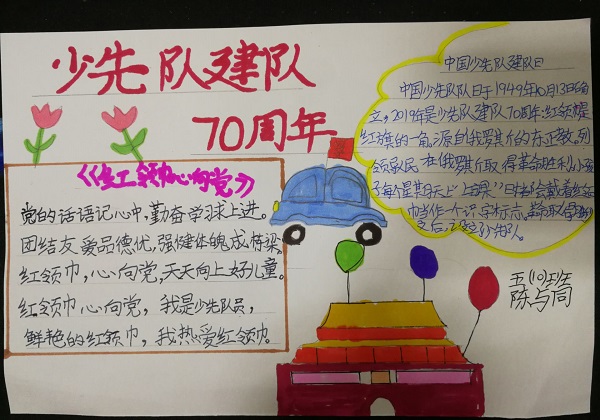 少先队建队
70周年
《红领巾心向党》
党的话语记心中,勤奋学习求上进。
团结友爱品德优,强健体魄成栋梁。
红领巾,心向党,天天向上好儿童。
红领巾心向党,我是少先队员,
鲜艳的红领巾,我热爱红领巾。
中国少先队建队日
中国少先队队日于1949年10月13日
立,2019年是少先队建队70周年:红领巾是
红旗的一角,源自俄罗斯的东正教,列
在俄罗斯取得革命胜利
子每个星期天上"上课"日
当作一个识字标志,革命取得
之后,
五(10)班
陈与同